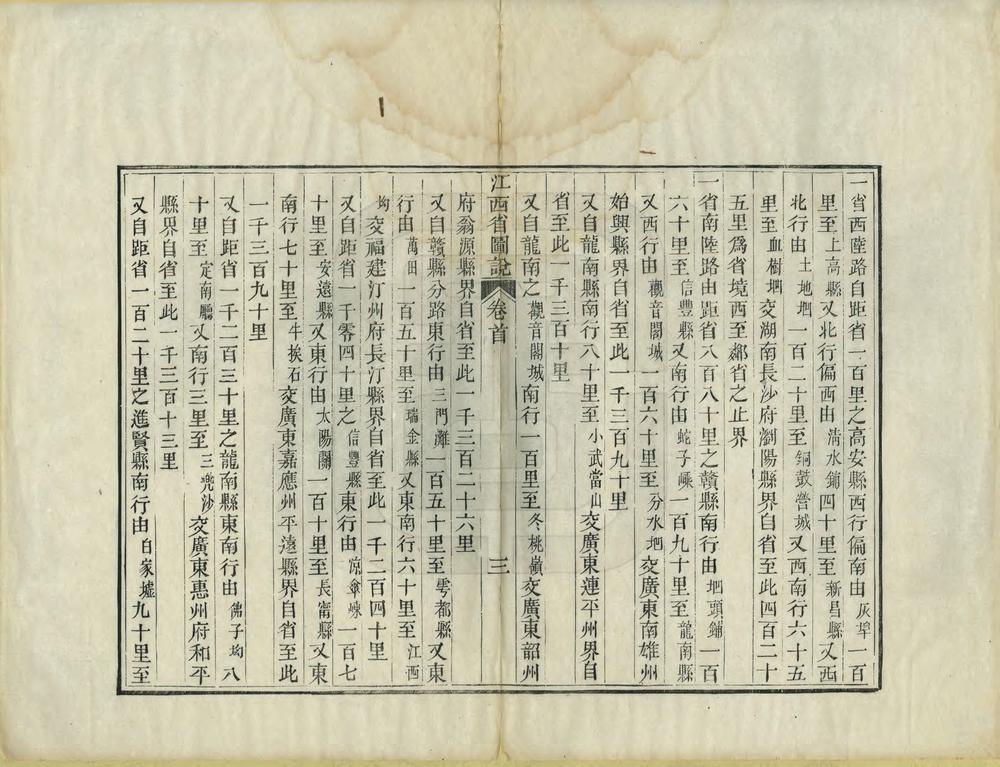 一省西陸路自距省一百里之高安縣西行偏南由灰埠一百
里至上高縣又北行偏西由清水鋪四十里至新昌縣又西
北行由土地㘭一百二十里至銅鼓營城又西南行六十五
里至血樹㘭交湖南長沙府瀏陽縣界自省至此四百二十
五里爲省境西至鄰省之止界
一省南陸路由距省八百八十里之贛縣南行由㘭頭鋪一百
六十里至信豐縣又南行由蛇子嵊一百九十里至龍南縣
又西行由觀音閣城一百六十里至分水㘭交廣東南雄州
始興縣界自省至此一千三百九十里
又自龍南縣南行八十里至小武當山交廣東連平州界自
省至此一千三百十里
又自龍南之觀音閣城南行一百里至冬桃嶺交廣東韶州
江西省圖說 卷首 三
府翁源縣界自省至此一千三百二十六里
又自贛縣分路東行由三門灘一百五十里至雩都縣又東
行由萬田一百五十里至瑞金縣又東南行六十里至江西
坳交福建汀州府長汀縣界自省至此一千二百四十里
又自距省一千零四十里之信豐縣東行由凉傘崠一百七
十里至安遠縣又東行由太陽關一百十里至長甯縣又東
南行七十里至牛挨石交廣東嘉應州平遠縣界自省至此
一千三百九十里
又自距省一千二百三十里之龍南縣東南行由佛子坳八
十里至定南廳又南行三里至三兜沙交廣東惠州府和平
縣界自省至此一千三百十三里
又自距省一百二十里之進賢縣南行由白家墟九十里至